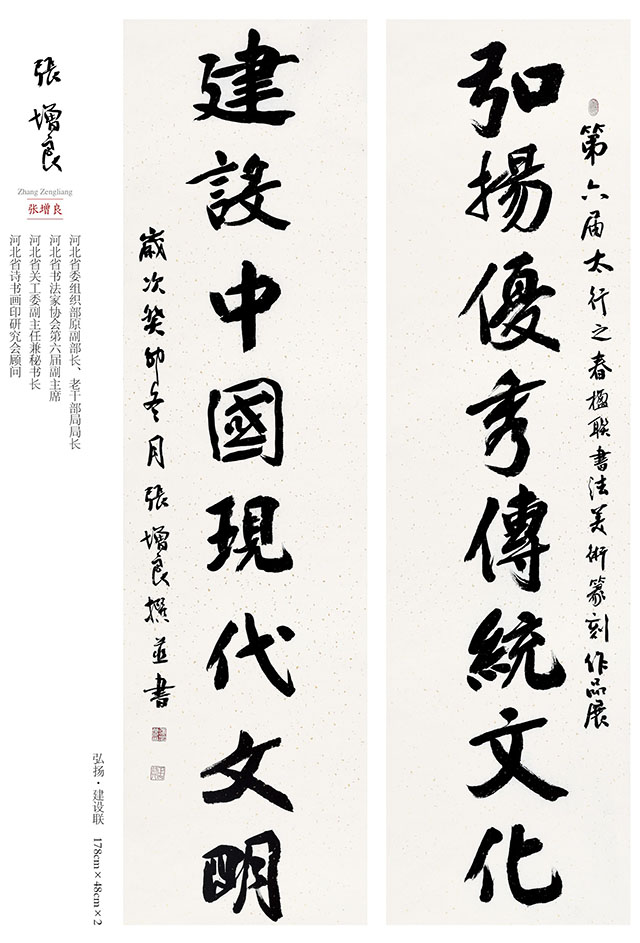 第六届太行之春楹联書法美術篆刻作品展
弘揚優秀傳統文化
建設中國現代文明
歲次癸卯冬月張增良撰並書
張增良
Zhang Zengliang
张增良
河北省委组织部原副部长、老干部局局长
河北省书法家协会第六届副主席
河北省关工委副主任兼秘书长
河北省诗书画印研究会顾问
弘扬·建设联 178cm×48cm×2